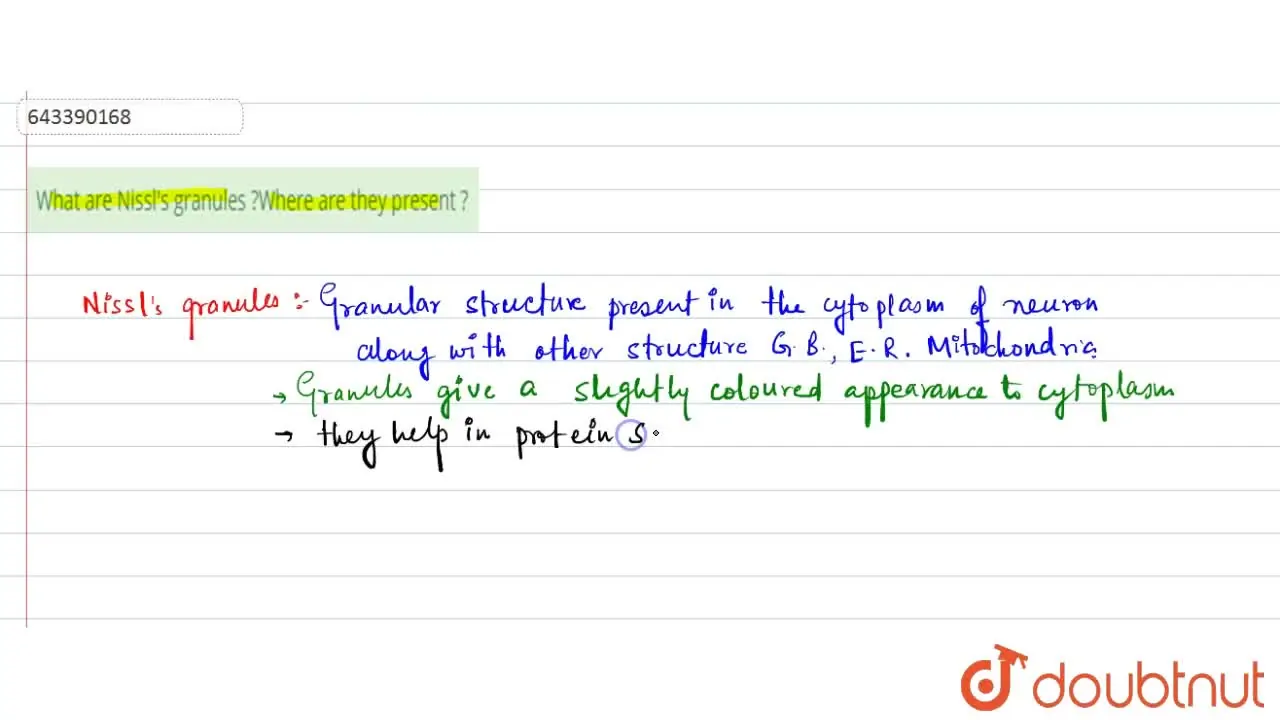 643390168
What are Nissl's granules ?Where are they present ?
Nissl's granules :- Granular structure present in the cytoplasm of neuron
along with other structure G.B., E.R. Mitochondria
→ Granules give a slightly coloured appearance to cytoplasm
→ they help in protein s
doubtnut